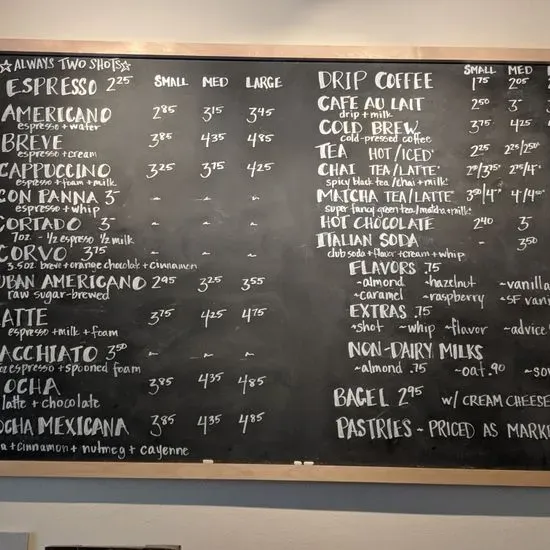 ☆ALWAYS TWO SHOTS☆
ESPRESSO 2.25 SMALL MED LARGE
AMERICANO 2.85 3.15 3.45
espresso + water
BREVE 3.85 4.35 4.85
espresso + cream
CAPPUCCINO 3.25 3.75 4.25
espresso + foam + milk
CON PANNA 3- ~ ~ ~
espresso + whip
CORTADO 3- ~ ~ ~
7oz - 1/2 espresso 1/2 milk
CORVO 3.75 ~ ~ ~
3.5oz breve + orange chocolate + cinnamon
UBAN AMERICANO 2.95 3.25 3.55
raw sugar-brewed
ATTE 3.75 4.25 4.75
espresso + milk + foam
ACCHIATO 3.50 ~ ~ ~
espresso + spooned foam
OCHA 3.85 4.35 4.85
latte + chocolate
OCHA MEXICANA 3.85 4.35 4.85
+ cinnamon + nutmeg + cayenne
SMALL MED
DRIP COFFEE 1.75 2.05
CAFE AU LAIT 2.50 3-
drip + milk
COLD BREW 3.75 4.25
cold-pressed coffee
TEA HOT/ICED* 2.25 2.25/2.50*
CHAI TEA/LATTE*
spicy black tea/chai + milk*
MATCHA TEA/LATTE* 3.50/4* 4/4.50*
super fancy green tea/matcha + milk*
HOT CHOCOLATE 2.40 3-
ITALIAN SODA - 3.50
club soda + flavor + cream + whip
FLAVORS .75
~almond ~hazelnut ~vanilla
~caramel ~raspberry ~SF van
EXTRAS .75
~shot ~whip ~flavor ~advice
NON-DAIRY MILKS
~almond .75 ~oat .90 ~so
BAGEL 2.95 w/ CREAM CHEESE
PASTRIES ~ PRICED AS MARK